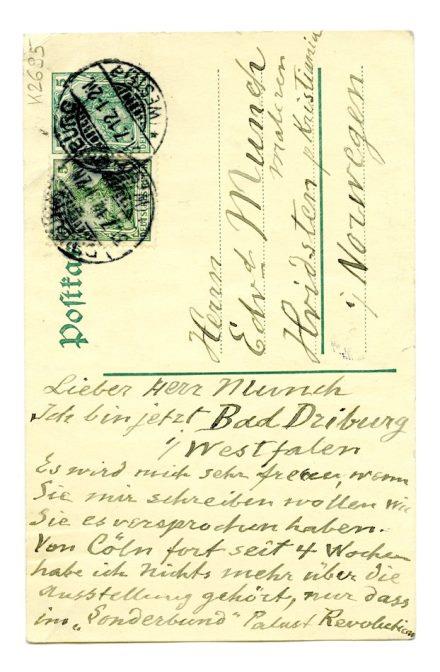 K2695
Postka
Herrn
Edv d Munch
Maleren
Hvidsten p Kristiania
i/ Norwegen
Lieber Herr Munch
Ich bin jetzt Bad Driburg
i/ Westfalen
Es wird mich sehr freuen, wenn
Sie mir schreiben wollen wie
Sie es versprochen haben.
Von Cöln fort seit 4 Wochen
habe ich nichts mehr über die
Ausstellung gehört, nur dass
im „Sonderbund" Palast Revolution